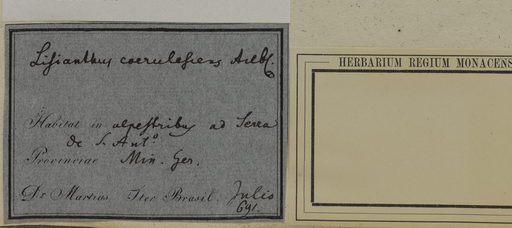 Lisianthus coerulescens Aubl.
Habitat in alpestribus ad Serra
de S. Ant.º
Provinciae Min. Ger.
Dr Martius Iter Brasil. Julio
691.
HERBARIUM REGIUM MONACENS